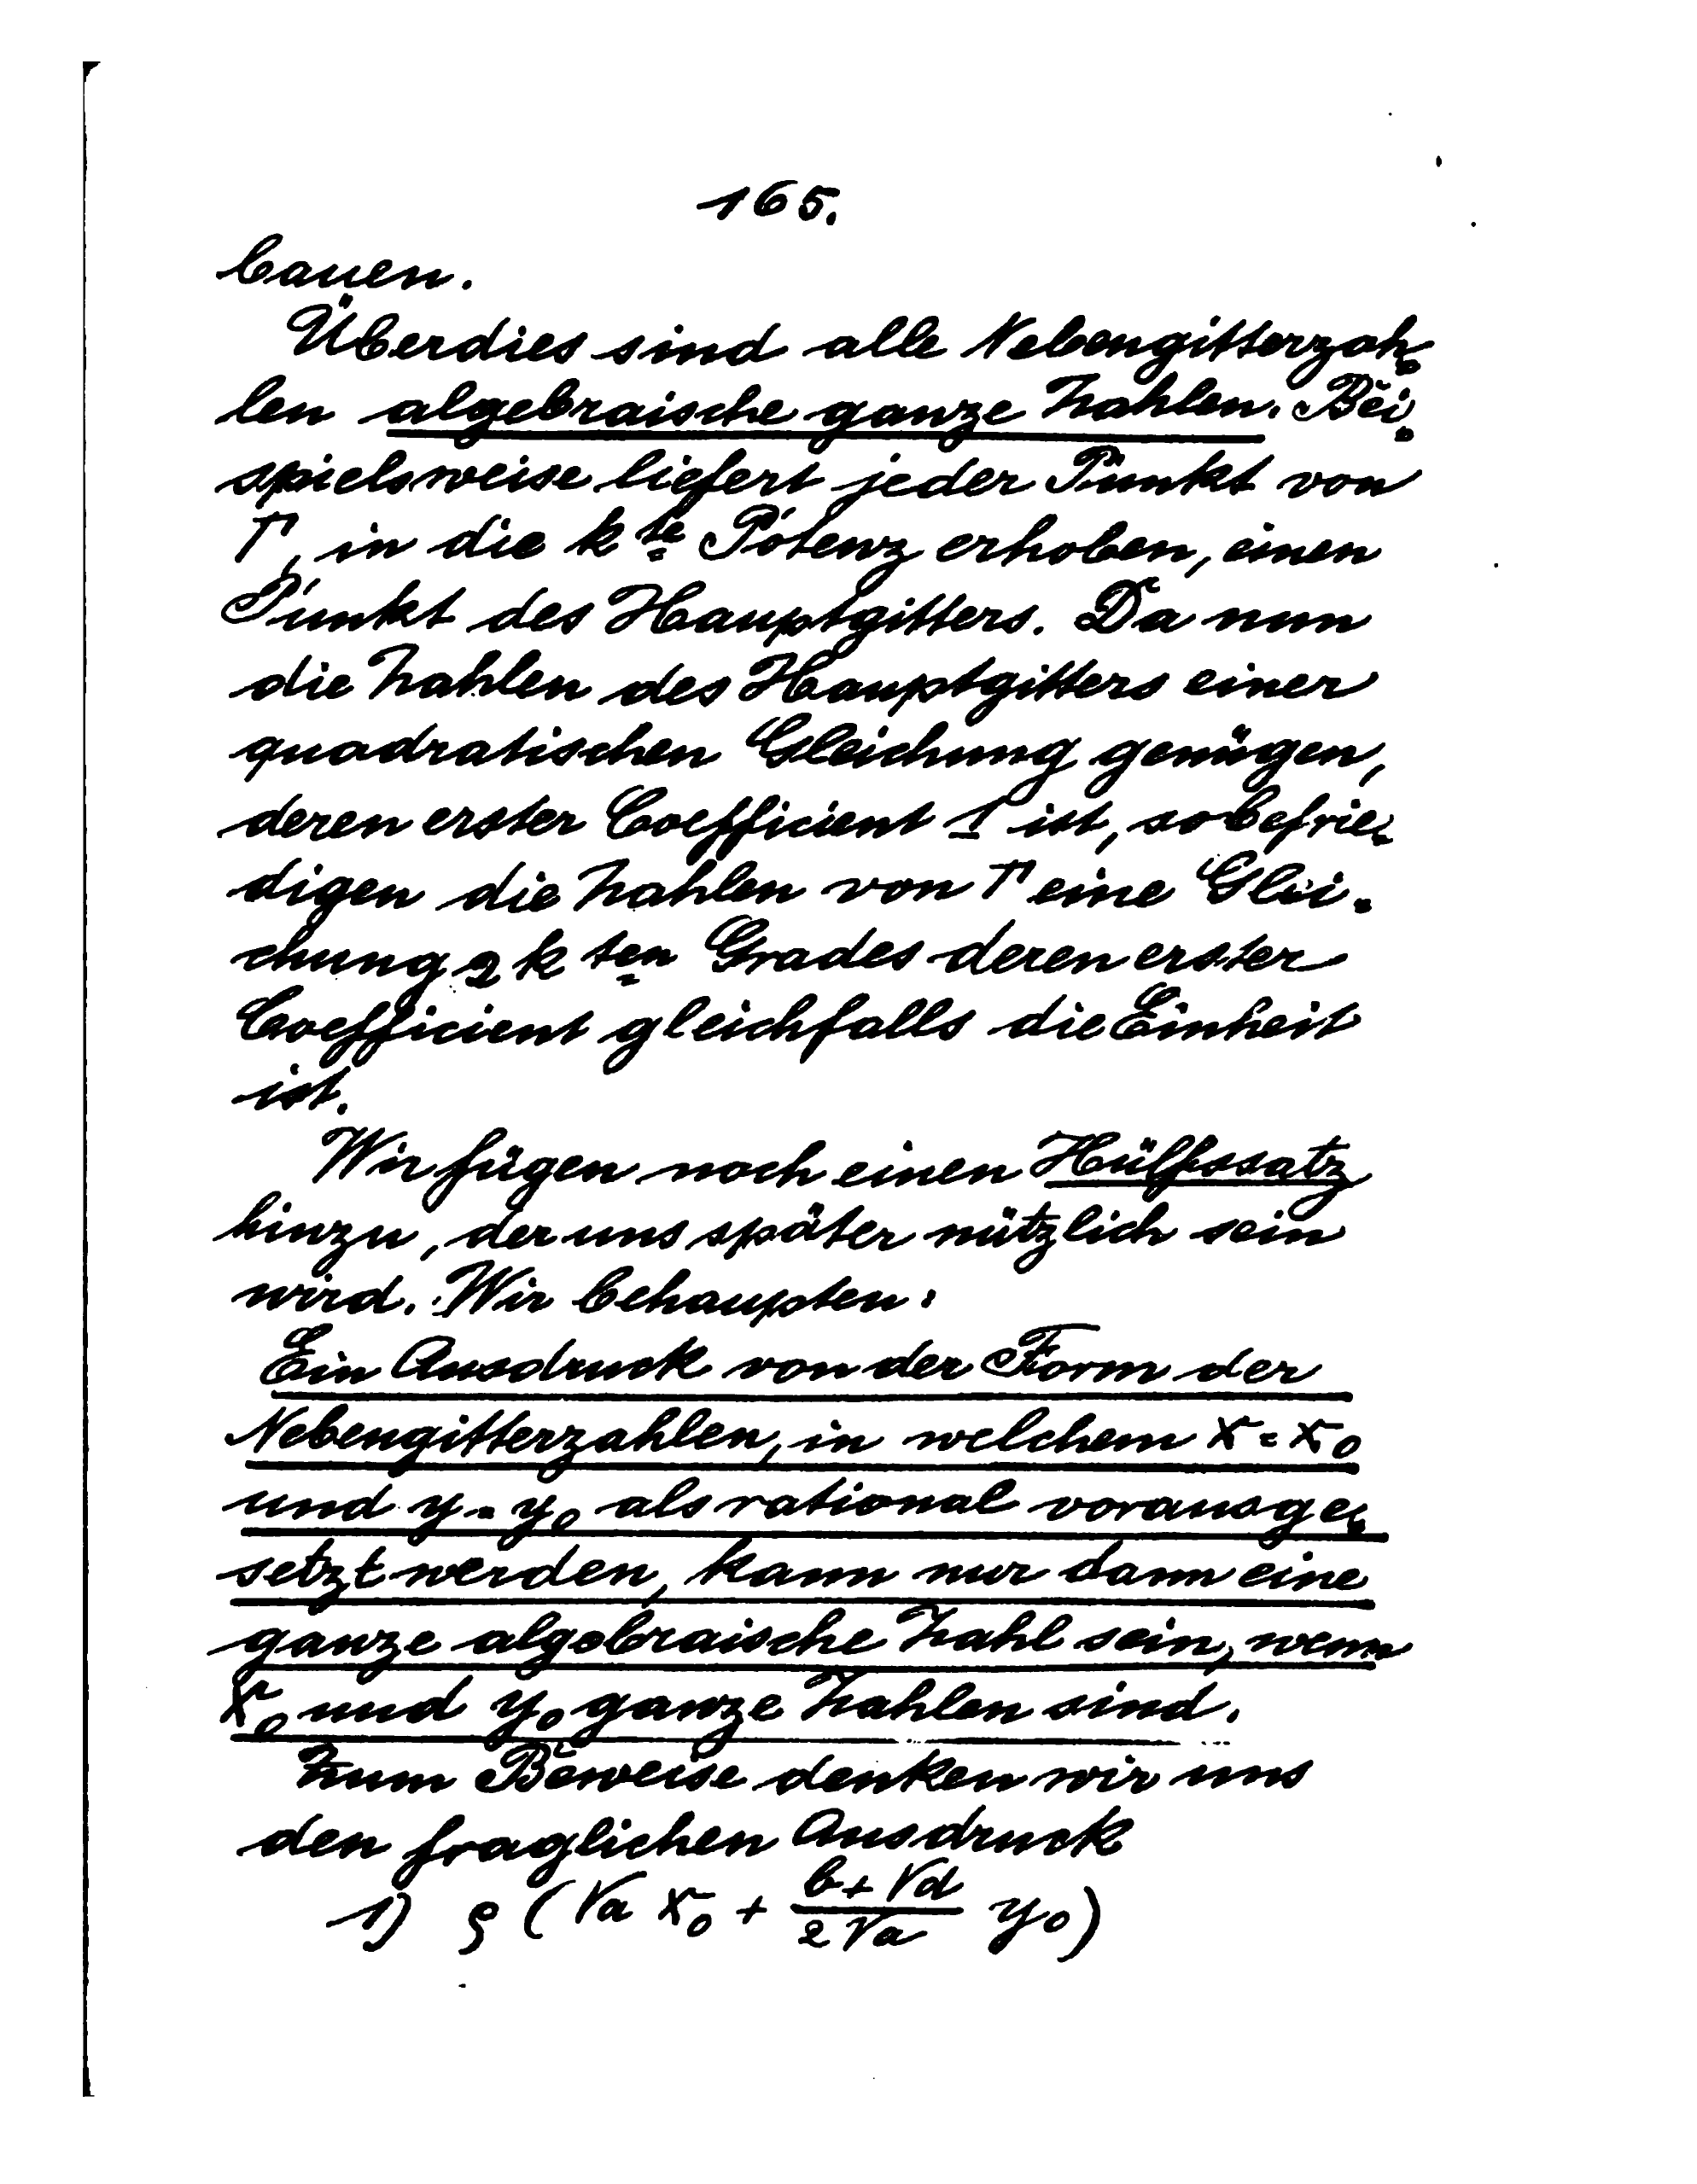 165.
bauen.
Überdies sind alle Nebengitterzah-
len algebraische ganze Zahlen. Bei-
spielsweise liefert jeder Punkt von
Γ, in die k te Potenz erhoben, einen
Punkt des Hauptgitters. Da nun
die Zahlen des Hauptgitters einer
quadratischen Gleichung genügen,
deren erster Coefficient 1 ist, so befrie-
digen die Zahlen von Γ eine Glei-
chung 2k ten Grades deren erster
Coefficient gleichfalls die Einheit
ist.
Wir fügen noch einen Hülfssatz
hinzu, der uns später nützlich sein
wird. Wir behaupten:
Ein Ausdruck von der Form der
Nebengitterzahlen, in welchem x = x₀
und y = y₀ als rational vorausge-
setzt werden, kann nur dann eine
ganze algebraische Zahl sein, wenn
x₀ und y₀ ganze Zahlen sind.
Zum Beweise denken wir uns
den fraglichen Ausdruck
1) ρ (√a x₀ + (b+√d)/(2√a) y₀)